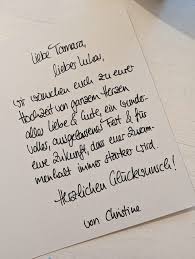 Liebe Tamara,
lieber Lukas,
wir wünschen euch zu eurer
Hochzeit von ganzem Herzen
alles Liebe & Gute, ein wunder-
volles, ausgelassenes Fest & für
eure Zukunft, dass euer Zusam-
menhalt immer stärker wird.
Herzlichen Glückwunsch!
von Christine